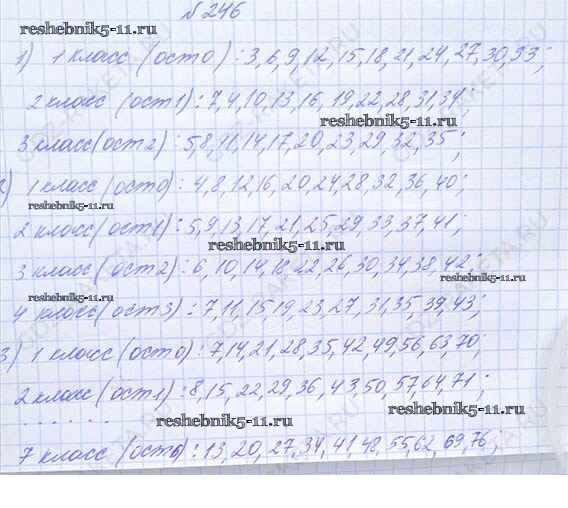 № 246
reshebnik5-11.ru
reshebnik5-11.ru
1) 1 класс (ост 0) : 3, 6, 9, 12, 15, 18, 21, 24, 27, 30, 33;
2 класс (ост 1) : 7, 4, 10, 13, 16, 19, 22, 28, 31, 34;
reshebnik5-11.ru
3 класс (ост 2) : 5, 8, 11, 14, 17, 20, 23, 29, 32, 35;
2) 1 класс (ост 0) : 4, 8, 12, 16, 20, 24, 28, 32, 36, 40;
reshebnik5-11.ru
2 класс (ост 1) : 5, 9, 13, 17, 21, 25, 29, 33, 37, 41;
reshebnik5-11.ru
3 класс (ост 2) : 6, 10, 14, 18, 22, 26, 30, 34, 38, 42;
reshebnik5-11.ru
reshebnik5-11.ru
4 класс (ост 3) : 7, 11, 15, 19, 23, 27, 31, 35, 39, 43;
3) 1 класс (ост 0) : 7, 14, 21, 28, 35, 42, 49, 56, 63, 70;
2 класс (ост 1) : 8, 15, 22, 29, 36, 43, 50, 57, 64, 71;
reshebnik5-11.ru
. . . . . . .
reshebnik5-11.ru
7 класс (ост 6) : 13, 20, 27, 34, 41, 48, 55, 62, 69, 76;